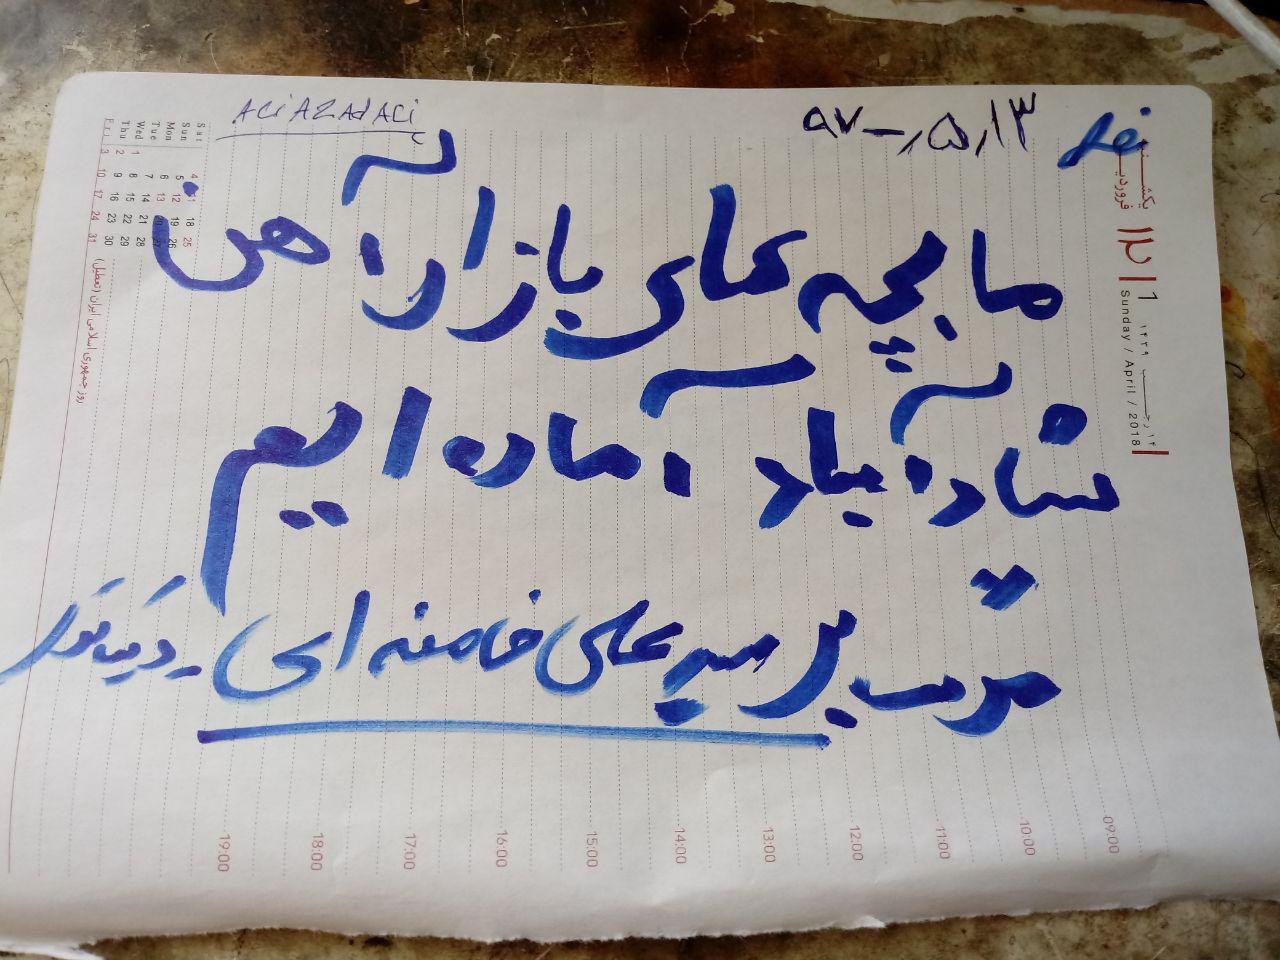 ACi AZAd ACi
97-,5,13
ما بچه های بازار آهن
شادآباد آماده ایم
مرگ بر سید علی خامنه ای
یکشنبه
فروردین
۱۲
1
۱۴ رجب ۱۴۳۹
Sunday / April / 2018
Sat Sun Mon Tue Wed Thu Fri
1 2 3
4 5 6 7 8 9 10
11 12 13 14 15 16 17
18 19 20 21 22 23 24
25 26 27 28 29 30 31
روز جمهوری اسلامی ایران (تعطیل)
09:00 10:00 11:00 12:00 13:00 14:00 15:00 16:00 17:00 18:00 19:00